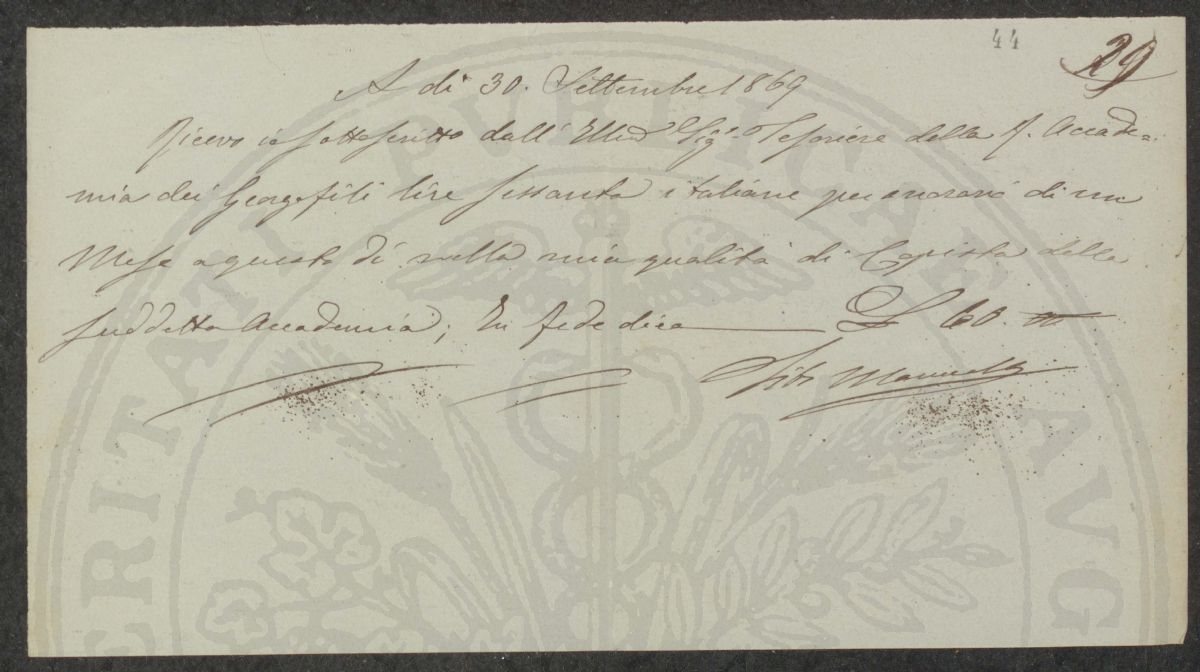 44
29
A di 30. Settembre 1869
Ricevo io sottoscritto dall' Illmo Sigr. Tesoriere della R. Accade=
mia dei Georgofili lire sessanta italiane per onorario di un
Mese a questo dì nella mia qualità di Copista della
suddetta Accademia; In fede dico L 60. "
Tito
PROSPERITATI PVBLICAE AVG